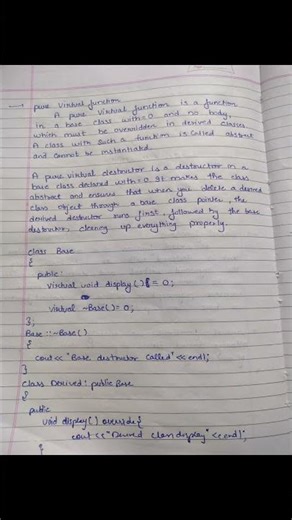 → pure Virtual function
A pure virtual function is a function
in a base class with = 0 and no body,
which must be overridden in derived classes
A class with such a function is called abstract
and cannot be instantiated.
A pure virtual destructor is a destructor in a
base class declared with = 0. It makes the class
abstract and ensures that when you delete a derived
class object through a base class pointer, the
derived destructor runs first, followed by the base
destructor, cleaning up everything properly.
class Base
{
public:
virtual void display() = 0;
virtual ~Base() = 0;
};
Base::~Base()
{
cout<< "Base destructor called" << endl;
}
class Derived: public Base
{
public
void display() override {
cout<<"Derived class display" << endl;
}